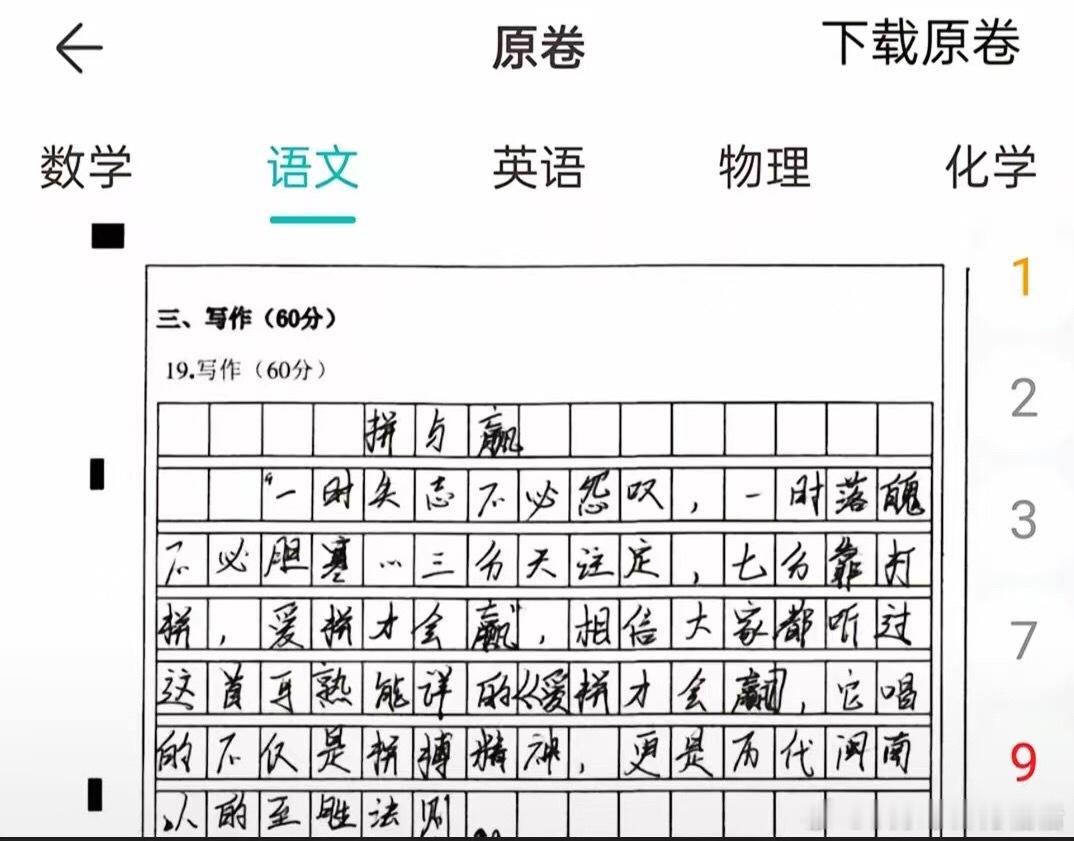 原卷
下载原卷
数学 语文 英语 物理 化学
三、写作（60分）
19.写作（60分）
拼与赢
“一时失志不必怨叹，一时落魄
不必胆寒…三分天注定，七分靠打
拼，爱拼才会赢”，相信大家都听过
这首耳熟能详的《爱拼才会赢》，它唱
的不仅是拼搏精神，更是历代闽南
人的至胜法则
1
2
3
7
9